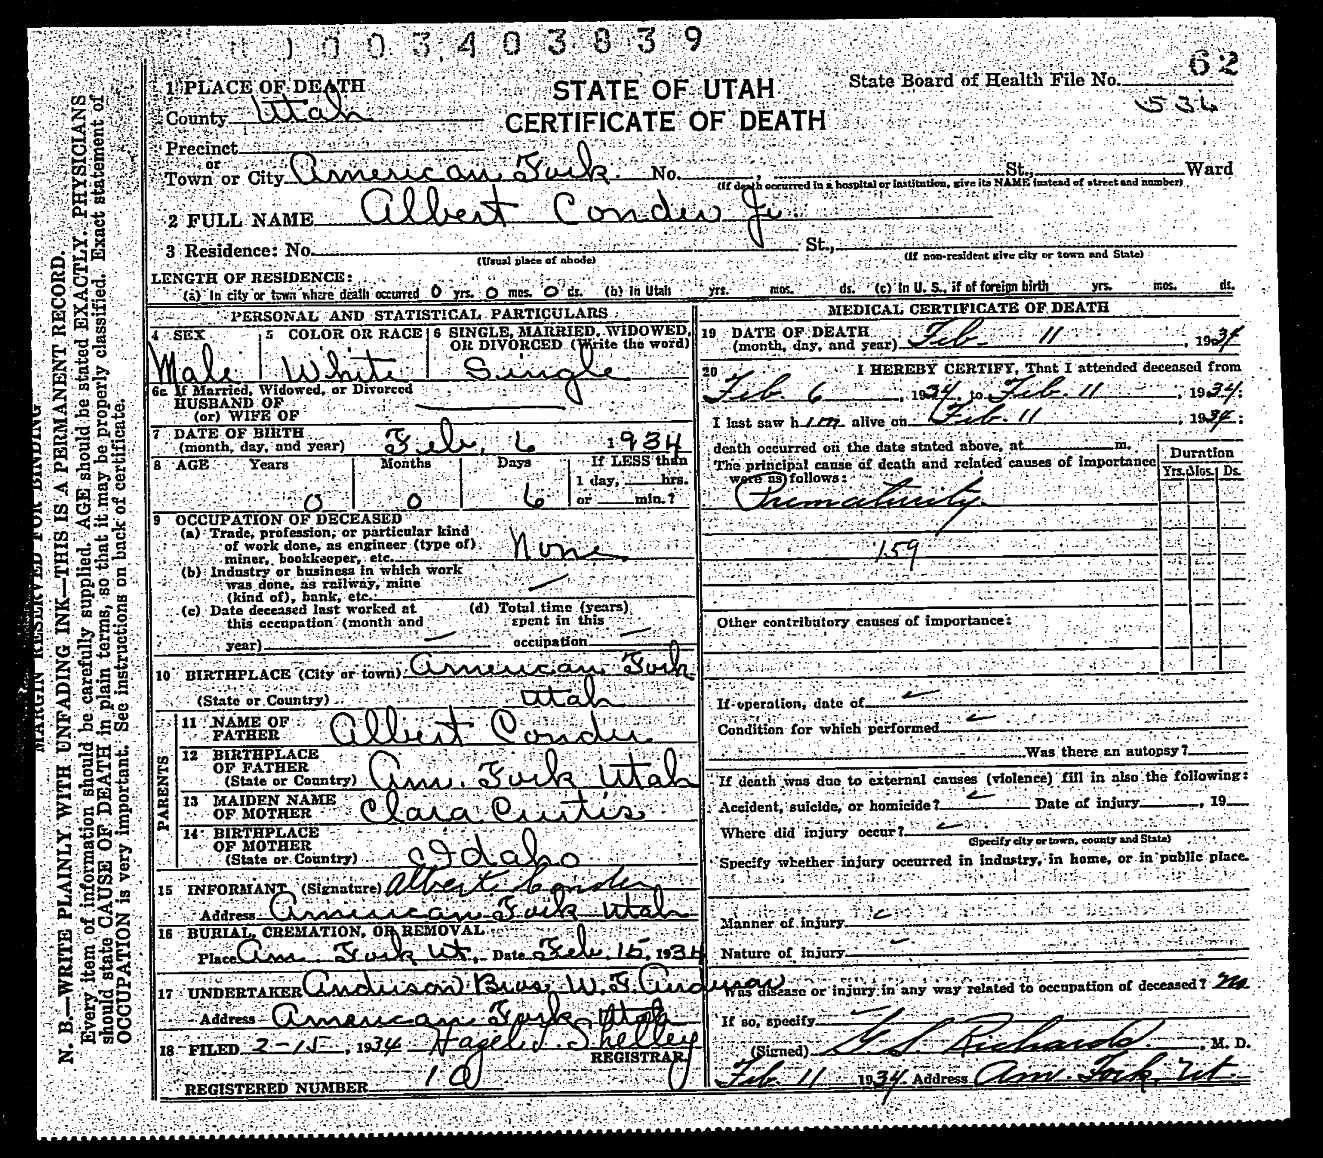 1003403839
62
1 PLACE OF DEATH
STATE OF UTAH
State Board of Health File No.
534
County Utah
CERTIFICATE OF DEATH
Precinct
or
Town or City American Fork. No. St., Ward
(If death occurred in a hospital or institution, give its NAME instead of street and number)
2 FULL NAME Albert Conder Jr.
3 Residence: No. St.,
(Usual place of abode) (If non-resident give city or town and State)
LENGTH OF RESIDENCE:
(a) In city or town where death occurred 0 yrs. 0 mos. 0 ds. (b) In Utah yrs. mos. ds. (c) in U. S., if of foreign birth yrs. mos. ds.
PERSONAL AND STATISTICAL PARTICULARS
4 SEX 5 COLOR OR RACE 6 SINGLE, MARRIED, WIDOWED,
OR DIVORCED (Write the word)
Male White Single
6a If Married, Widowed, or Divorced
HUSBAND OF
(or) WIFE OF
7 DATE OF BIRTH
(month, day, and year) Feb. 6 1934
8 AGE Years Months Days If LESS than
1 day, hrs.
or min.?
0 0 6
9 OCCUPATION OF DECEASED
(a) Trade, profession, or particular kind
of work done, as engineer (type of)
miner, bookkeeper, etc. None
(b) Industry or business in which work
was done, as railway, mine
(kind of), bank, etc.
(c) Date deceased last worked at (d) Total time (years)
this occupation (month and spent in this
year) occupation
10 BIRTHPLACE (City or town) American Fork
(State or Country) Utah
PARENTS
11 NAME OF
FATHER Albert Conder
12 BIRTHPLACE
OF FATHER
(State or Country) Am. Fork Utah
13 MAIDEN NAME
OF MOTHER Clara Curtis
14 BIRTHPLACE
OF MOTHER
(State or Country) Idaho
15 INFORMANT (Signature) Albert Conder
Address American Fork Utah
16 BURIAL, CREMATION, OR REMOVAL
Place Am. Fork Ut. Date Feb. 15, 1934
17 UNDERTAKER Anderson Bros. W. F. Anderson
Address American Fork Utah
18 FILED 2-15, 1934 Hazel J. Shelley
REGISTRAR
REGISTERED NUMBER 10
MEDICAL CERTIFICATE OF DEATH
19 DATE OF DEATH
(month, day, and year) Feb. 11, 1934
20 I HEREBY CERTIFY, That I attended deceased from
Feb. 6, 1934, to Feb. 11, 1934:
I last saw him alive on Feb. 11, 1934:
death occurred on the date stated above, at m.
The principal cause of death and related causes of importance
were as follows:
Duration
Yrs. Mos. Ds.
Prematurity.
159
Other contributory causes of importance:
If operation, date of
Condition for which performed
Was there an autopsy?
If death was due to external causes (violence) fill in also the following:
Accident, suicide, or homicide? Date of injury , 19
Where did injury occur?
(Specify city or town, county and State)
Specify whether injury occurred in industry, in home, or in public place.
Manner of injury
Nature of injury
Was disease or injury in any way related to occupation of deceased? No
If so, specify
(Signed) G. S. Richards, M. D.
Feb. 11 1934. Address Am. Fork, Ut.
MARGIN RESERVED FOR BINDING
N. B.—WRITE PLAINLY WITH UNFADING INK—THIS IS A PERMANENT RECORD.
Every item of information should be carefully supplied. AGE should be stated EXACTLY. PHYSICIANS
should state CAUSE OF DEATH in plain terms, so that it may be properly classified. Exact statement of
OCCUPATION is very important. See instructions on back of certificate.